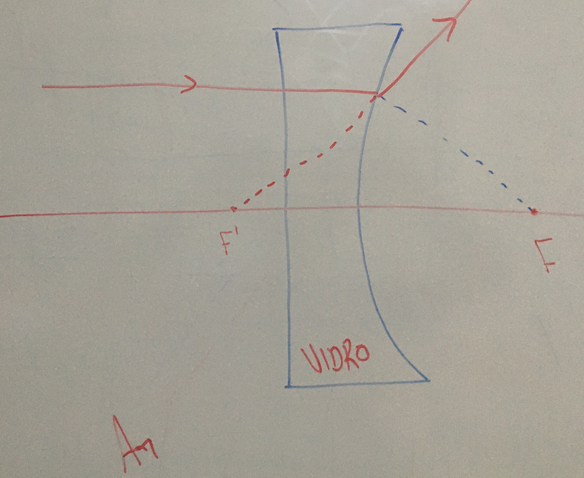 F'
F
VIDRO
Ar